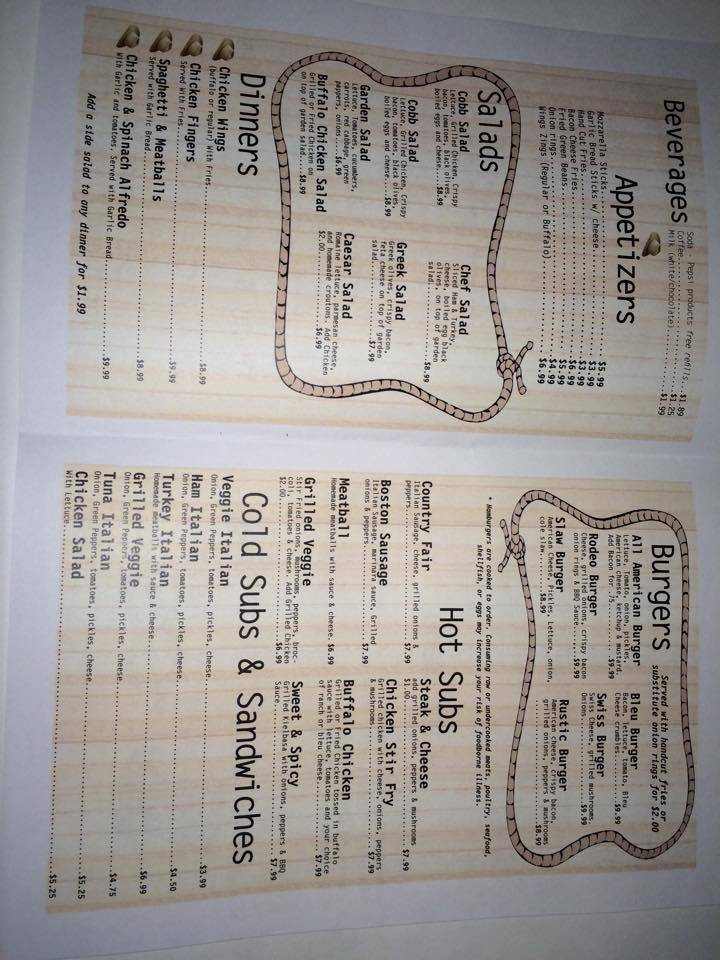 Beverages
Soda - Pepsi products free refils...$1.89
Coffee...$1.25
Milk (white/chocolate)...$1.99
Appetizers
Mozzarella Sticks...$5.99
Garlic Bread Sticks w/ cheese...$3.99
Hand Cut Fries...$3.99
Bacon Cheese Fries...$6.99
Fried Green Beans...$5.99
Onion rings...$4.99
Wings Zings (Regular or Buffalo)...$6.99
Salads
Cobb Salad
Lettuce, Grilled Chicken, Crispy
bacon, tomatoes, black olives,
boiled eggs and cheese...$8.99
Cobb Salad
Lettuce, Grilled Chicken, Crispy
bacon, tomatoes, black olives,
boiled eggs and cheese...$8.99
Garden Salad
Lettuce, Tomatoes, cucumbers,
carrots, red cabbage, green
peppers, onions...$6.99
Buffalo Chicken Salad
Grilled or Fried Chicken on
on top of garden salad...$8.99
Chef Salad
Sliced Ham & Turkey,
cheese, boiled egg black
olives, on top of garden
salad...$8.99
Greek Salad
Greek olives, crispy bacon,
feta cheese on top of garden
salad...$7.99
Caesar Salad
Romaine lettuce, parmesan cheese,
and homemade croutons. Add Chicken
$2.00...$6.99
Dinners
Chicken Wings
(buffalo or regular) With Fries...$8.99
Chicken Fingers
Served With Fries...$9.99
Spaghetti & Meatballs
Served with Garlic Bread...$8.99
Chicken & Spinach Alfredo
With Garlic and tomatoes. Served with Garlic Bread...$9.99
Add a side salad to any dinner for $1.99
Burgers
Served with handcut fries or
substitute onion rings for $2.00
All American Burger
Lettuce, Tomato, onion, pickles,
American cheese, ketchup & mustard.
Add Bacon for .75...$9.99
Rodeo Burger
Cheese, grilled onions, crispy bacon
onion rings & BBQ Sauce...$9.99
Slaw Burger
American Cheese, Pickles, Lettuce, onion,
cole slaw...$8.99
Bleu Burger
Bacon, lettuce, tomato, Bleu
Cheese crumbles...$9.99
Swiss Burger
Swiss Cheese, grilled mushrooms,
Onions...$9.99
Rustic Burger
American cheese, crispy bacon,
grilled onions, peppers & mushrooms
$8.99
* Hamburgers are cooked to order. Consuming raw or undercooked meats, poultry, seafood,
shelfish, or eggs may increase your risk of foodborne illness.
Hot Subs
Country Fair
Italian Sausage, cheese, grilled onions &
peppers...$7.99
Boston Sausage
Italian Sausage, marinara sauce, Grilled
onions & peppers...$7.99
Meatball
Homemade meatballs with sauce & cheese. $6.99
Grilled Veggie
Stir Fried onions, mushrooms, peppers, broc-
coli, tomatoes & cheese. Add Grilled Chicken
$2.00...$6.99
Steak & Cheese
add grilled onions, peppers & mushrooms
$1.00...$7.99
Chicken Stir Fry
Grilled chicken with cheese, onions, peppers
& mushrooms...$7.99
Buffalo Chicken
Grilled or fried Chicken tossed in buffalo
sauce with lettuce, tomatoes and your choice
of ranch or bleu cheese...$7.99
Sweet & Spicy
Grilled Kielbasa with onions, peppers & BBQ
Sauce...$7.99
Cold Subs & Sandwiches
Veggie Italian
Onion, Green Peppers, tomatoes, pickles, cheese...$3.99
Ham Italian
Onion, Green Peppers, tomatoes, pickles, cheese...$4.50
Turkey Italian
Homemade meatballs with sauce & cheese...$6.99
Grilled Veggie
Onion, Green Peppers, tomatoes, pickles, cheese...$4.75
Tuna Italian
Onion, Green Peppers, tomatoes, pickles, cheese...$5.25
Chicken Salad
With Lettuce...$5.25